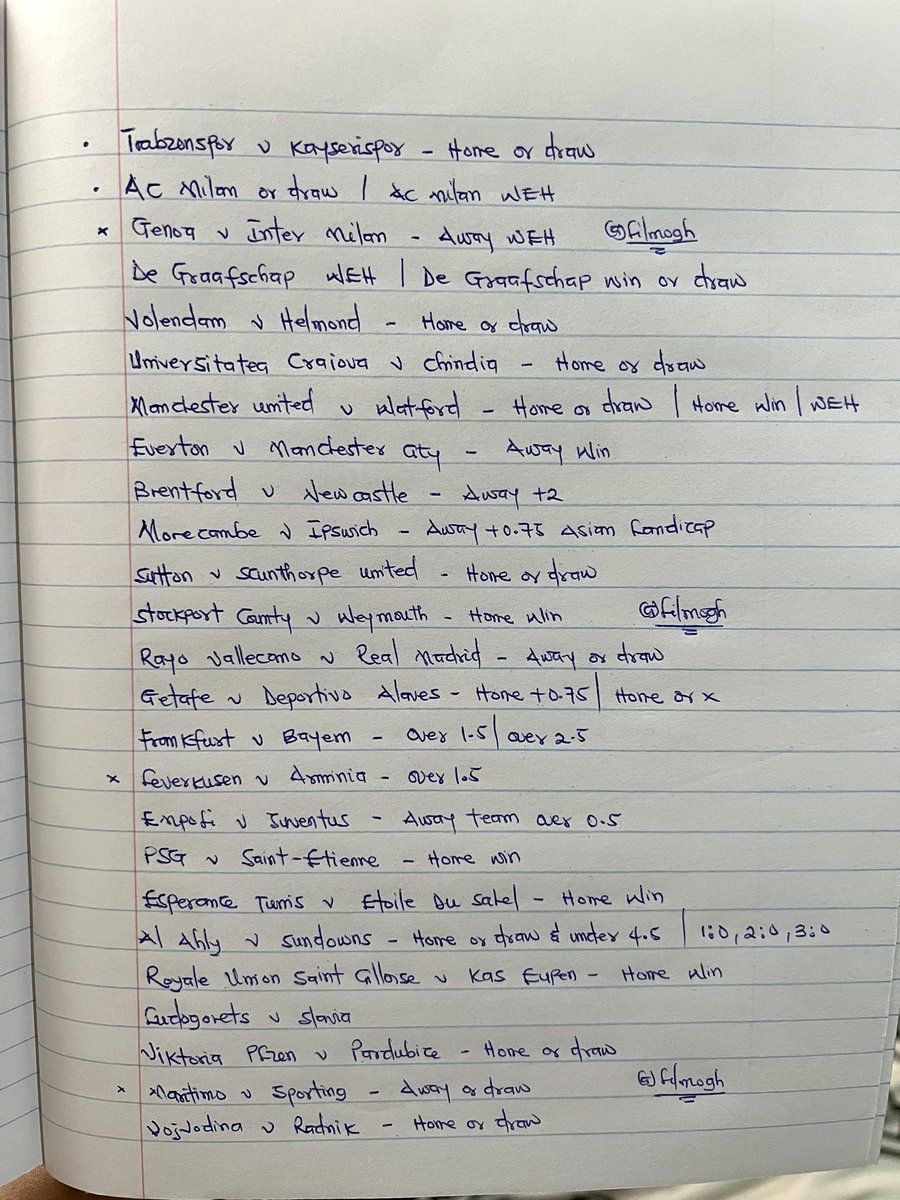 • Trabzonspor v Kayserispor - Home or draw
• AC Milan or draw | AC Milan WEH
x Genoa v Inter Milan - Away WEH @filmogh
De Graafschap WEH | De Graafschap win or draw
Volendam v Helmond - Home or draw
Universitatea Craiova v Chindia - Home or draw
Manchester united v Watford - Home or draw | Home Win | WEH
Everton v Manchester City - Away Win
Brentford v Newcastle - Away +2
Morecambe v Ipswich - Away +0.75 Asian Handicap
Sutton v Scunthorpe united - Home or draw
Stockport County v Weymouth - Home Win @filmogh
Rayo Vallecano v Real Madrid - Away or draw
Getafe v Deportivo Alaves - Home +0.75 | Home or x
Frankfurt v Bayern - over 1.5 | over 2.5
x Leverkusen v Arminia - over 1.5
Empoli v Juventus - Away team over 0.5
PSG v Saint-Etienne - Home win
Esperance Tunis v Etoile Du Sahel - Home Win
Al Ahly v Sundowns - Home or draw & under 4.5 | 1:0, 2:0, 3:0
Royale Union Saint Gilloise v Kas Eupen - Home Win
Ludogorets v Slavia
Viktoria Plzen v Pardubice - Home or draw
x Maritimo v Sporting - Away or draw @filmogh
Vojvodina v Radnik - Home or draw